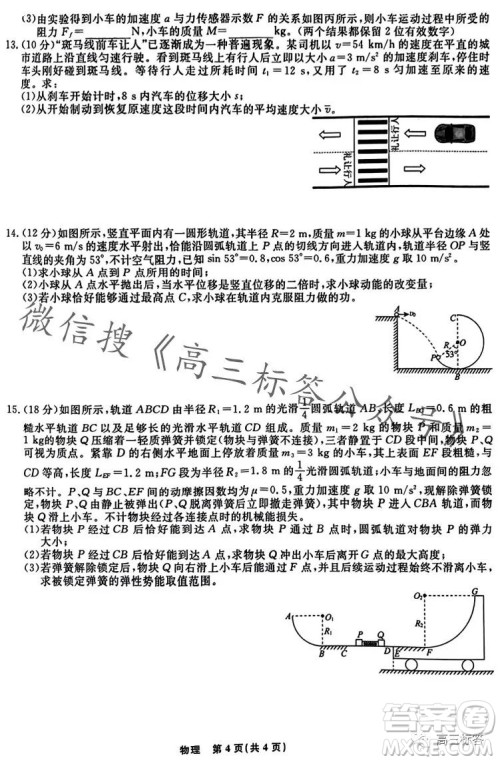 (3)由实验得到小车的加速度 a 与力传感器示数 F 的关系如图丙所示,则小车运动过程中所受的
阻力 Ff= N,小车的质量 M= kg.(结果都保留 2 位有效数字)
13.(10 分)“斑马线前车让人”已逐渐成为一种普遍现象。某司机以 v=54 km/h 的速度在平直的城
市道路上沿直线匀速行驶。看到斑马线上有行人后立即以大小 a=3 m/s² 的加速度刹车,停住时
车头刚好碰到斑马线。等待行人走过所用时间 t₁=12 s,又用了 t₂=8 s 匀加速至原来的速度。
求:
(1)从刹车开始计时,8 s 内汽车的位移大小 s;
(2)从开始制动到恢复原速度这段时间内汽车的平均速度大小 v̄.
礼让行人
礼让行人
14.(12 分)如图所示,竖直平面内有一圆形轨道,其半径 R=2 m,质量 m=1 kg 的小球从平台边缘 A 处
以 v₀=6 m/s 的速度水平射出,恰能沿圆弧轨道上 P 点的切线方向进入轨道内侧,轨道半径 OP 与竖
直线的夹角为 53°,不计空气阻力,已知 sin 53°=0.8,cos 53°=0.6,重力加速度 g 取 10 m/s².
(1)求小球从 A 点到 P 点所用的时间;
(2)小球从 A 点水平抛出后,当水平位移是竖直位移的二倍时,求小球动能的改变量;
(3)若小球恰好能够通过最高点 C,求小球在轨道内克服阻力做的功。
A v₀ C O R 53° P B
15.(18 分)如图所示,轨道 ABCD 由半径 R₁=1.2 m 的光滑 1/4 圆弧轨道 AB、长度 L_BC=0.6 m 的粗
糙水平轨道 BC 以及足够长的光滑水平轨道 CD 组成。质量 m₁=2 kg 的物块 P 和质量 m₂=
1 kg的物块 Q 压缩着一轻质弹簧并锁定(物块与弹簧不连接),三者静置于 CD 段中间,物块 P、Q
可视为质点。紧靠 D 的右侧水平地面上停放着质量 m₃=3 kg 的小车,其上表面 EF 段粗糙,与
CD 等高,长度 L_EF=1.2 m;FG 段为半径 R₂=1.8 m 的 1/4 光滑圆弧轨道;小车与地面间的阻力忽
略不计。P、Q 与 BC、EF 间的动摩擦因数均为 μ=0.5,重力加速度 g 取 10 m/s²,现解除弹簧锁
定,物块 P、Q 由静止被弹出(P、Q 脱离弹簧后立即撤走弹簧),其中物块 P 进入 CBA 轨道,而物
块 Q 滑上小车。不计物块经过各连接点时的机械能损失。
(1)若物块 P 经过 CB 后恰好能到达 A 点,求物块 P 通过 B 点时,圆弧轨道对物块 P 的弹力
大小;
(2)若物块 P 经过 CB 后恰好能到达 A 点,求物块 Q 冲出小车后离开 G 点的最大高度;
(3)若弹簧解除锁定后,物块 Q 向右滑上小车后能通过 F 点,并且后续运动过程始终不滑离小车,
求被锁定弹簧的弹性势能取值范围。
A O₁ R₁ B C P Q D E F O₂ R₂ G
微信搜《高三标答公众号》
答案圈
高三标答
物理 第 4 页(共 4 页)